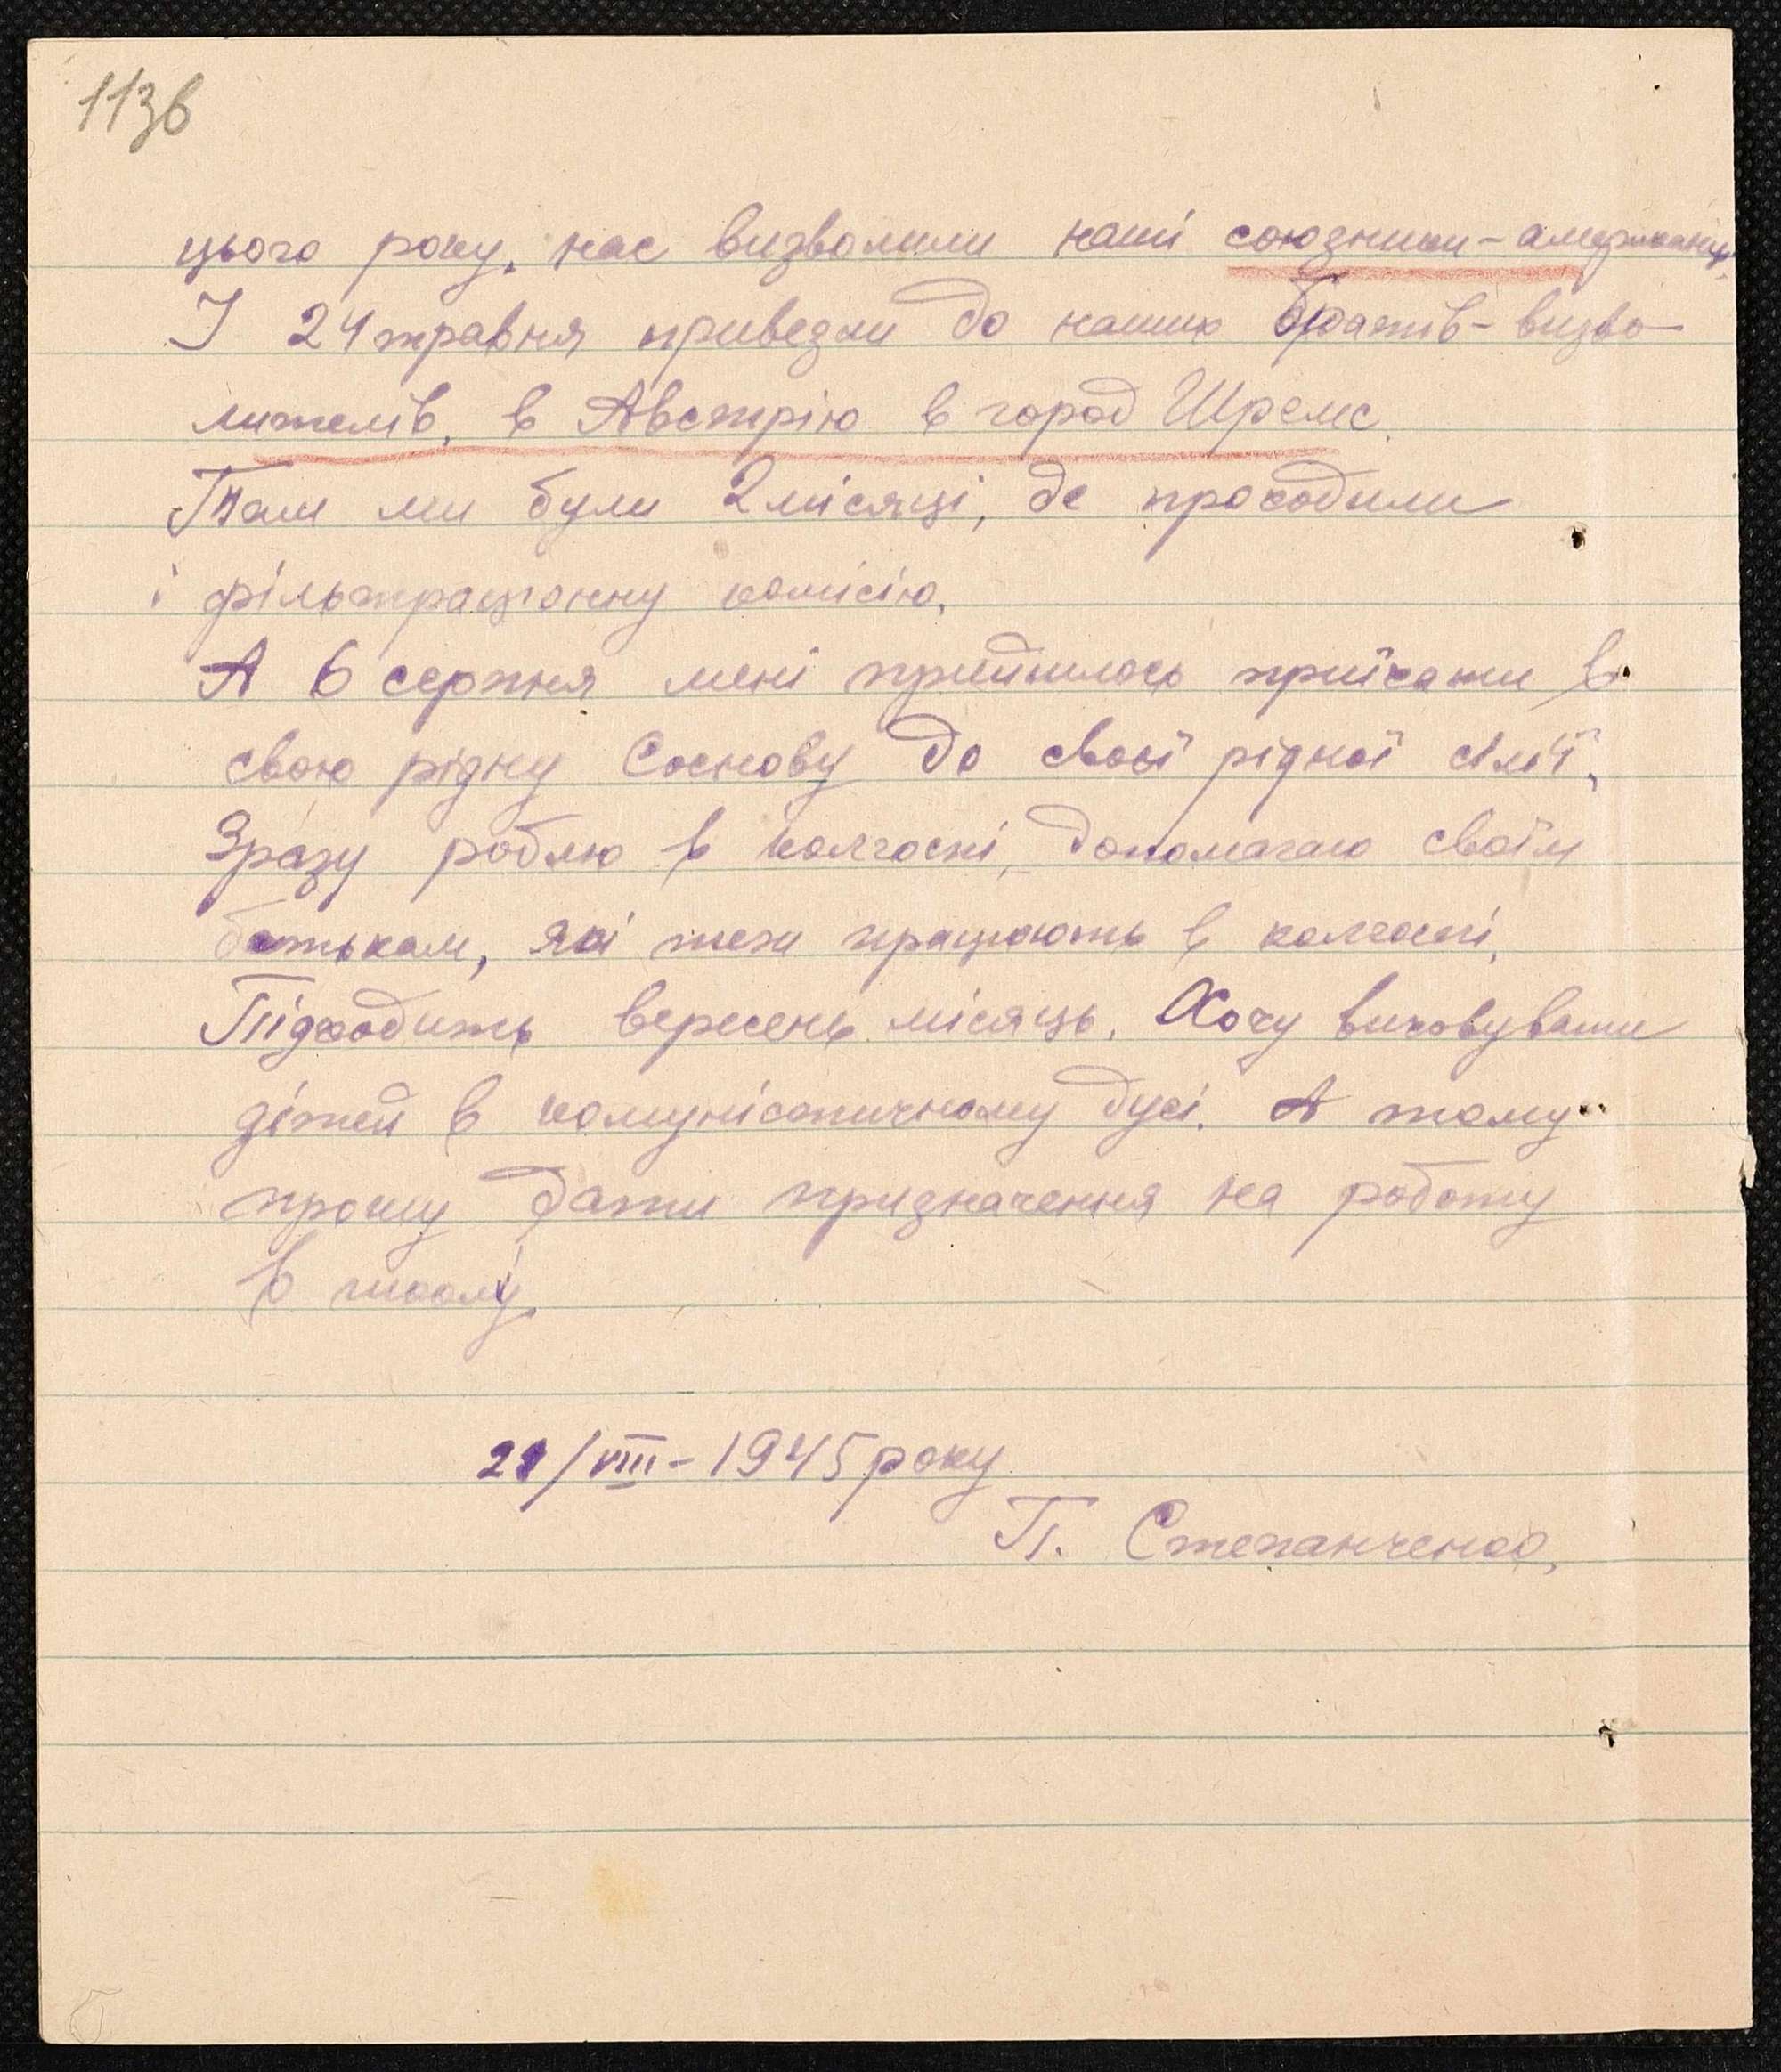 113в
цього року, нас визволили наші союзники-американці,
І 24 травня привезли до наших братів-визво-
лителів, в Австрію в город Шремс.
Там ми були 2 місяці, де проходили
і фільтраціонну комісію.
А 6 серпня мені прийшлось приїхати в
свою рідну Соснову до своєї рідної сім'ї,
Зразу роблю в колгоспі, допомагаю своїм
батькам, які теж працюють в колгоспі,
Підходить вересень місяць. Хочу виховувати
дітей в комуністичному дусі. А тому
прошу дати призначення на роботу
в школу.
21/VIII-1945 року
П. Степанченко,